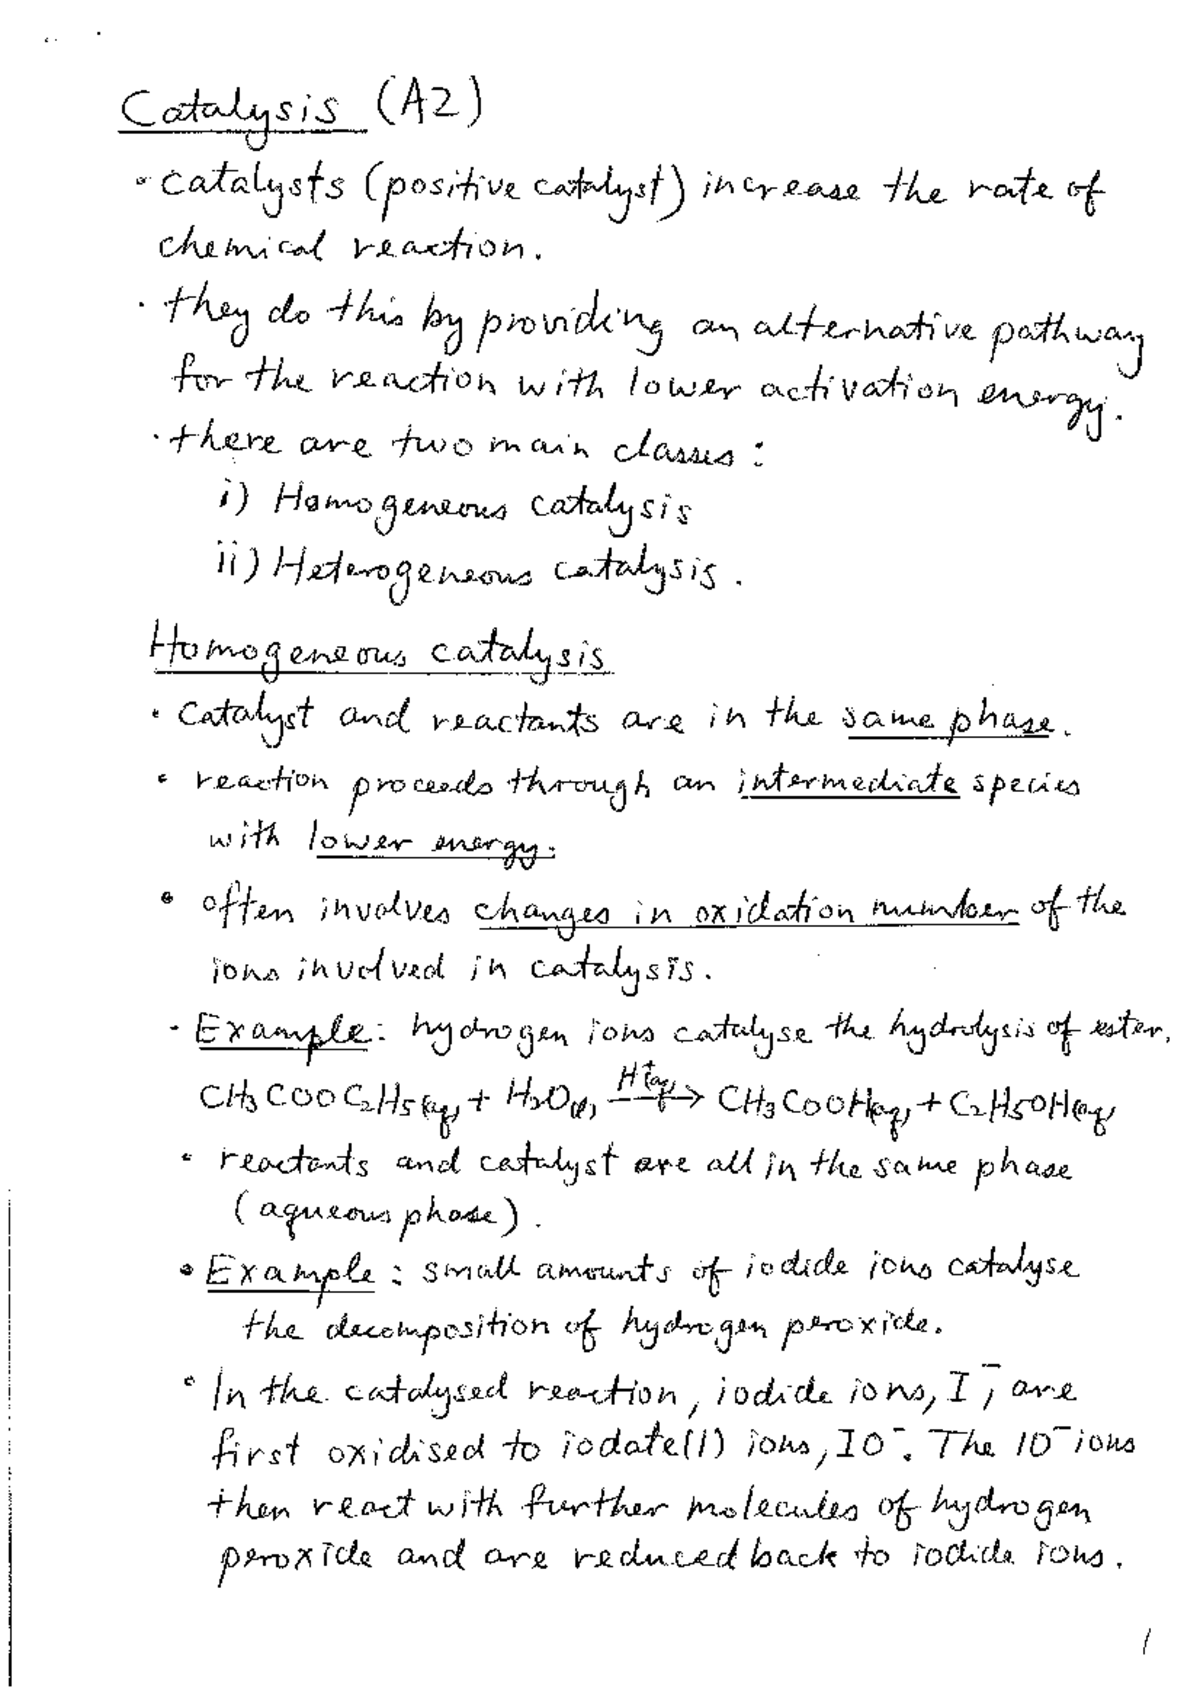 Catalysis (A2)
• catalysts (positive catalyst) increase the rate of
chemical reaction.
• they do this by providing an alternative pathway
for the reaction with lower activation energy.
• there are two main classes :
i) Homogeneous catalysis
ii) Heterogeneous catalysis .
Homogeneous catalysis
• catalyst and reactants are in the same phase.
• reaction proceeds through an intermediate species
with lower energy.
• often involves changes in oxidation number of the
ions involved in catalysis.
• Example: hydrogen ions catalyse the hydrolysis of ester.
CH₃COOC₂H₅(aq) + H₂O(l) H⁺(aq) → CH₃COOH(aq) + C₂H₅OH(aq)
• reactants and catalyst are all in the same phase
(aqueous phase).
• Example : small amounts of iodide ions catalyse
the decomposition of hydrogen peroxide.
• In the catalysed reaction, iodide ions, I⁻, are
first oxidised to iodate(I) ions, IO⁻. The IO⁻ ions
then react with further molecules of hydrogen
peroxide and are reduced back to iodide ions.
1